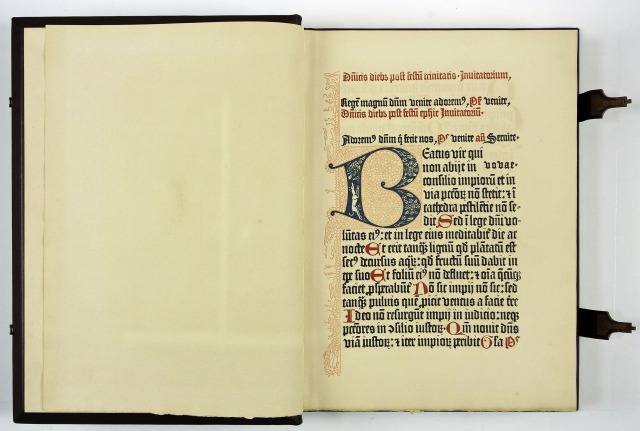 Dñicis dieb⁊ post festũ trinitatis · Inuitatorium,
Regẽ magnũ dñm venite adorem⁹, Ps̃ venite,
Dñicis dieb⁊ post festũ ephie Inuitatoriũ·
Adorem⁹ dñm q̃ fecit nos, Ps̃ venite añ Seruite·
Beatus vir qui
non abijt in · vovae·
consilio impiorũ et in
via pctõꝝ nõ stetit: ⁊ ĩ
cathedra pestilẽtie nõ se-
dit· Sed ĩ lege dñi vo-
lũtas ei⁹: et in lege eius meditabit̃ die ac
nocte Et erit tanq̃ lignũ qd̃ plãtatũ est
sec⁹ decursus aqꝝ: qd̃ fructũ suũ dabit in
tp̃e suo Et foliũ ei⁹ nõ defluet: ⁊ oĩa q̃cũq⁊
faciet ꝓsꝑabũt̃ Nõ sic impij nõ sic: sed
tanq̃ puluis quẽ ꝓicit ventus a facie tr̃e
Ideo nõ resurgũt impij in iudicio: neq⁊
pctõres in ↄsilio iustoꝝ· Qm̃ nouit dñs
viã iustoꝝ: ⁊ iter impioꝝ peribit Gl̃a Ps̃